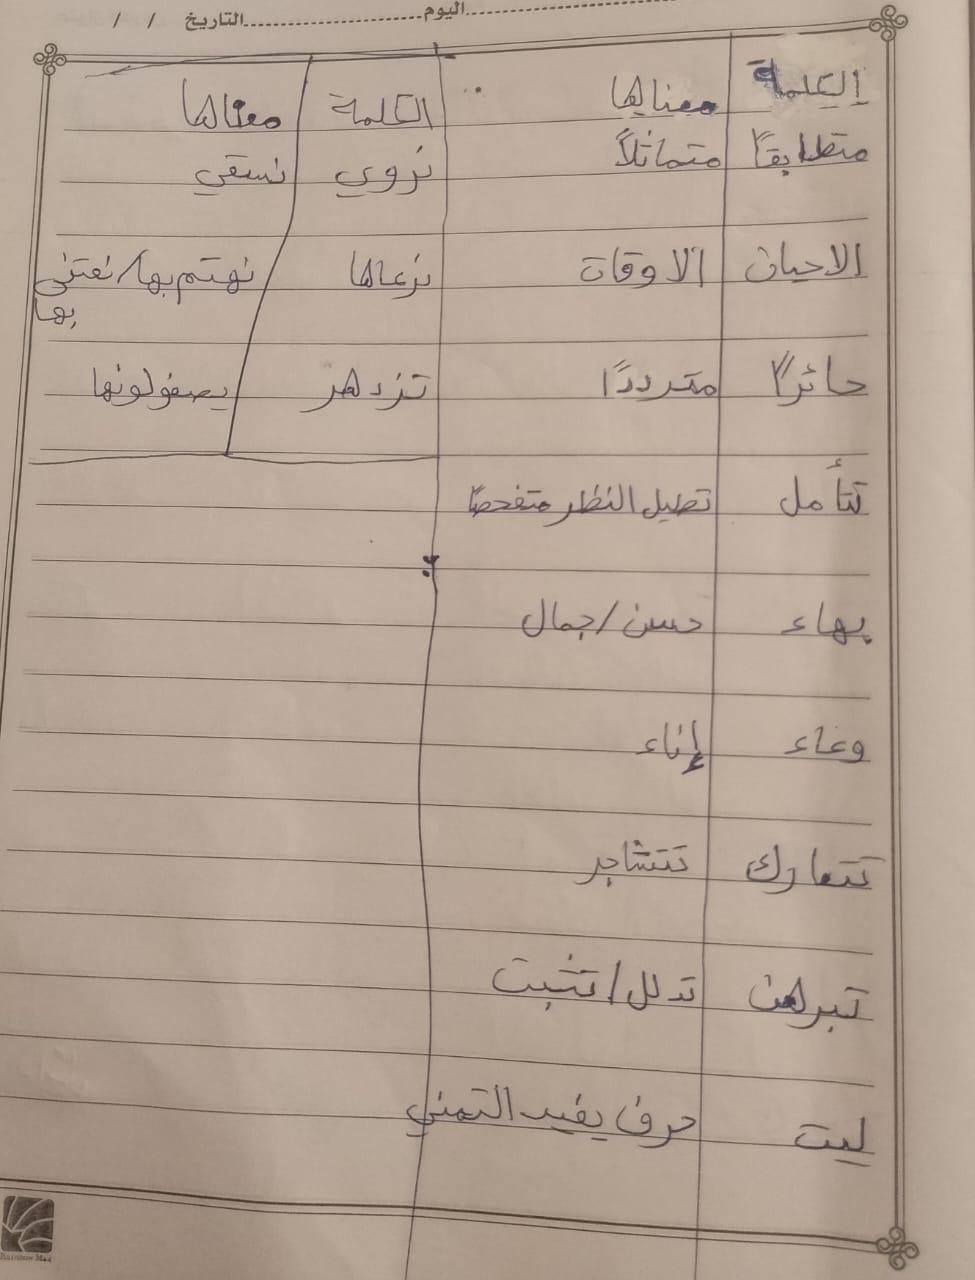 اليوم........................ التاريخ / /
الكلمة معناها
متطابقًا متماثلاً
الاحيان الاوقات
حائرًا مترددًا
تتأمل تطيل النظر متفحصًا
بهاء حسن/جمال
وعاء إناء
تتعارك تتشاجر
تبرهن تدلل/تثبت
ليت حرف يفيد التمني
الكلمة معناها
نروي نسقي
نرعاها نهتم بها/نعتني
بها
تزدهر
Rainbow Max